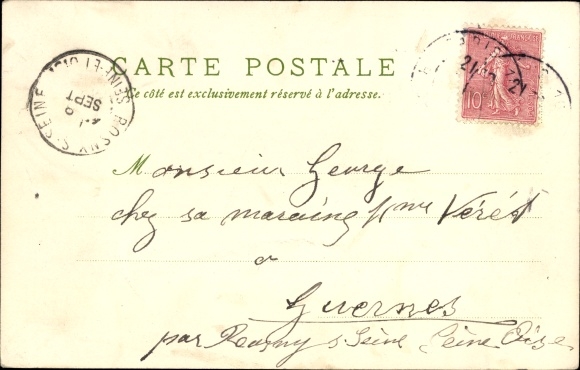 CARTE POSTALE
Ce côté est exclusivement réservé à l'adresse.
ROSNY S SEINE SEINE-ET-OISE
SEPT
10
Monsieur George
chez sa marraine Mme Vérét
a
Guernes
par Rosny s Seine Seine Oise